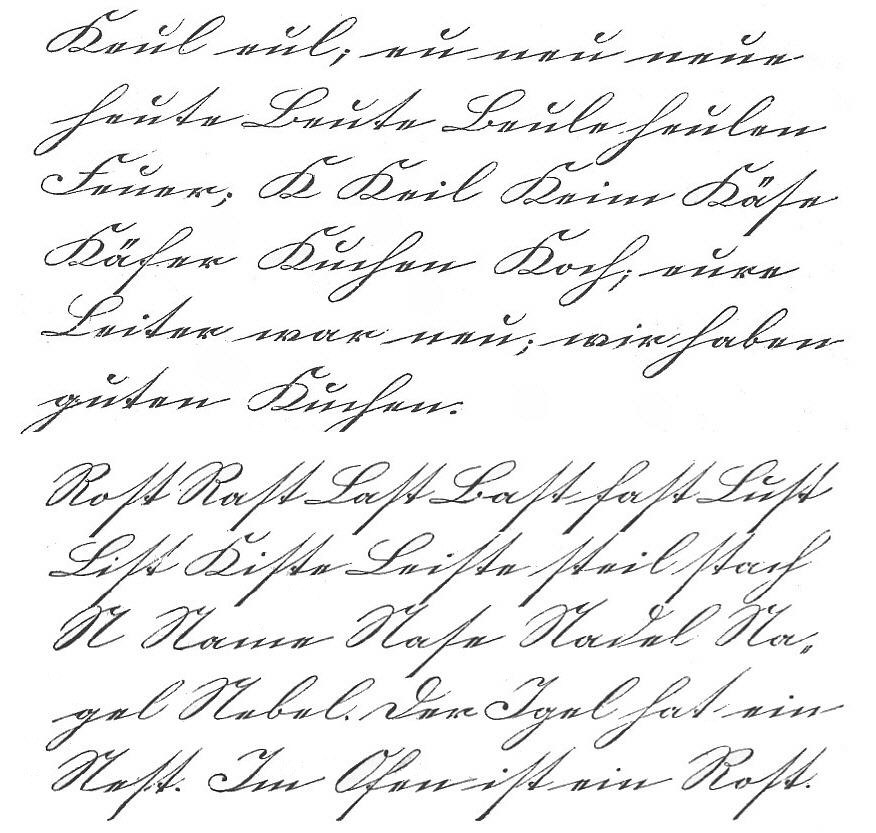 Keul eul; eu neu neue
heute Beute Beule heulen
Feuer; K Keil Keim Käse
Käfer Kuchen Koch; eure
Leiter war neu; wir haben
guten Kuchen.
Rost Rast Last Bast fast Lust
List Kiste Leiste steil stach
N Name Nase Nadel Na=
gel Nebel. Der Igel hat ein
Nest. Im Ofen ist ein Rost.